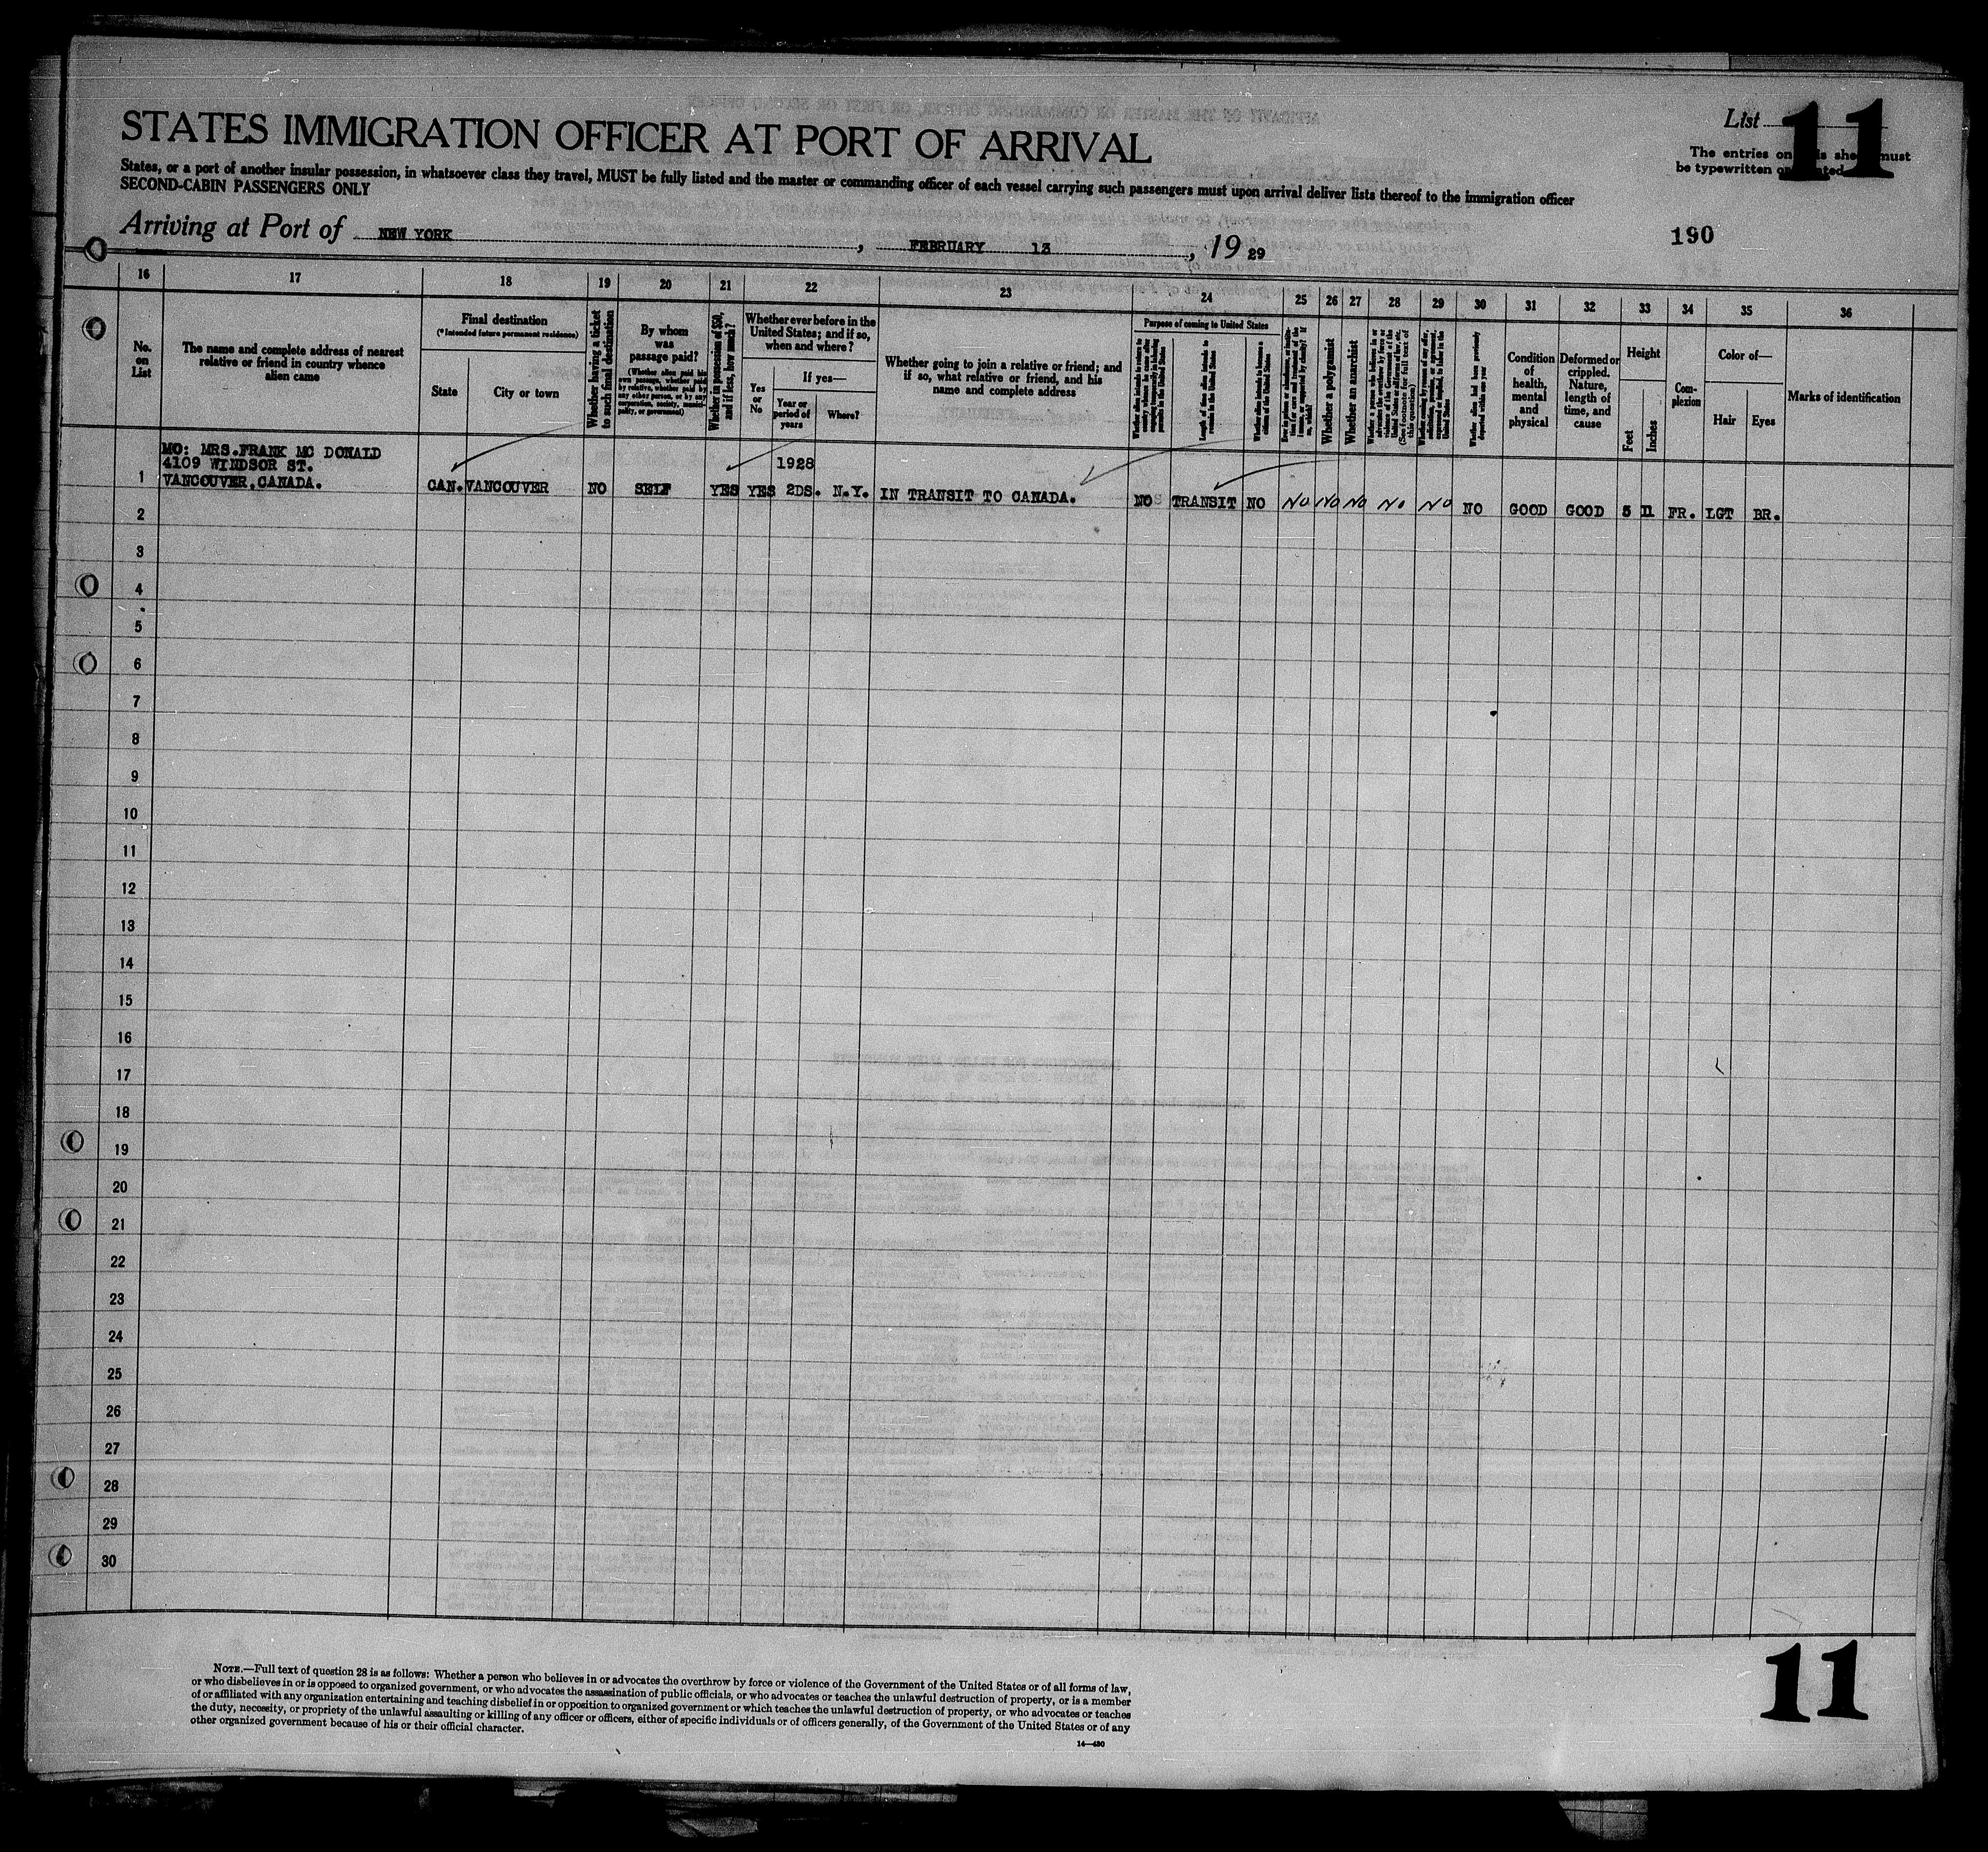 STATES IMMIGRATION OFFICER AT PORT OF ARRIVAL
List 11
The entries on this sheet must
be typewritten or printed
States, or a port of another insular possession, in whatsoever class they travel, MUST be fully listed and the master or commanding officer of each vessel carrying such passengers must upon arrival deliver lists thereof to the immigration officer
SECOND-CABIN PASSENGERS ONLY
Arriving at Port of NEW YORK, FEBRUARY 13, 19 29
190
16 17 18 19 20 21 22 23 24 25 26 27 28 29 30 31 32 33 34 35 36
No. on List
The name and complete address of nearest relative or friend in country whence alien came
Final destination
(*Intended future permanent residence)
State
City or town
Whether having a ticket to such final destination
By whom was passage paid?
(Whether alien paid his own passage, whether paid by relative, whether paid by any other person, or by any corporation, society, municipality, or government)
Whether in possession of $50, and if less, how much?
Whether ever before in the United States; and if so, when and where?
Yes or No
If yes—
Year or period of years
Where?
Whether going to join a relative or friend; and if so, what relative or friend, and his name and complete address
Purpose of coming to United States
Length of time alien intends to remain in the United States
Whether alien intends to become a citizen of the United States
Whether a polygamist
Whether an anarchist
Whether alien had been previously deported within one year
Condition of health, mental and physical
Deformed or crippled. Nature, length of time, and cause
Height
Feet
Inches
Complexion
Color of—
Hair
Eyes
Marks of identification
MO: MRS.FRANK MC DONALD
4109 WINDSOR ST.
1928
1 VANCOUVER,CANADA. CAN. VANCOUVER NO SELF YES YES 2DS. N.Y. IN TRANSIT TO CANADA. NO TRANSIT NO No No No No No NO GOOD GOOD 5 11 FR. LGT BR.
2
3
4
5
6
7
8
9
10
11
12
13
14
15
16
17
18
19
20
21
22
23
24
25
26
27
28
29
30
NOTE.—Full text of question 28 is as follows: Whether a person who believes in or advocates the overthrow by force or violence of the Government of the United States or of all forms of law,
or who disbelieves in or is opposed to organized government, or who advocates the assassination of public officials, or who advocates or teaches the unlawful destruction of property, or is a member
of or affiliated with any organization entertaining and teaching disbelief in or opposition to organized government or which teaches the unlawful destruction of property, or who advocates or teaches
the duty, necessity, or propriety of the unlawful assaulting or killing of any officer or officers, either of specific individuals or of officers generally, of the Government of the United States or of any
other organized government because of his or their official character.
14—430
11